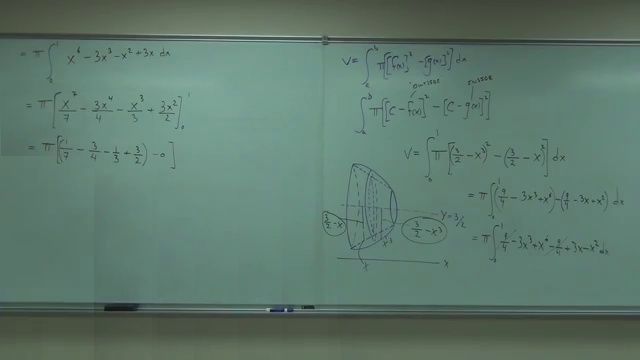 = π ∫₀¹ x⁶ - 3x³ - x² + 3x dx
= π [x⁷/7 - 3x⁴/4 - x³/3 + 3x²/2]₀¹
= π [(1/7 - 3/4 - 1/3 + 3/2) - 0]
V = ∫ₐᵇ π[[f(x)]² - [g(x)]²] dx
∫ₐᵇ π[[C - f(x)]² - [C - g(x)]²]
V = ∫₀¹ π[(3/2 - x³)² - (3/2 - x)²] dx
= π ∫₀¹ (9/4 - 3x³ + x⁶) - (9/4 - 3x + x²) dx
= π ∫₀¹ 9/4 - 3x³ + x⁶ - 9/4 + 3x - x² dx
y = 3/2
3/2 - x
3/2 - x³
x³
x
x